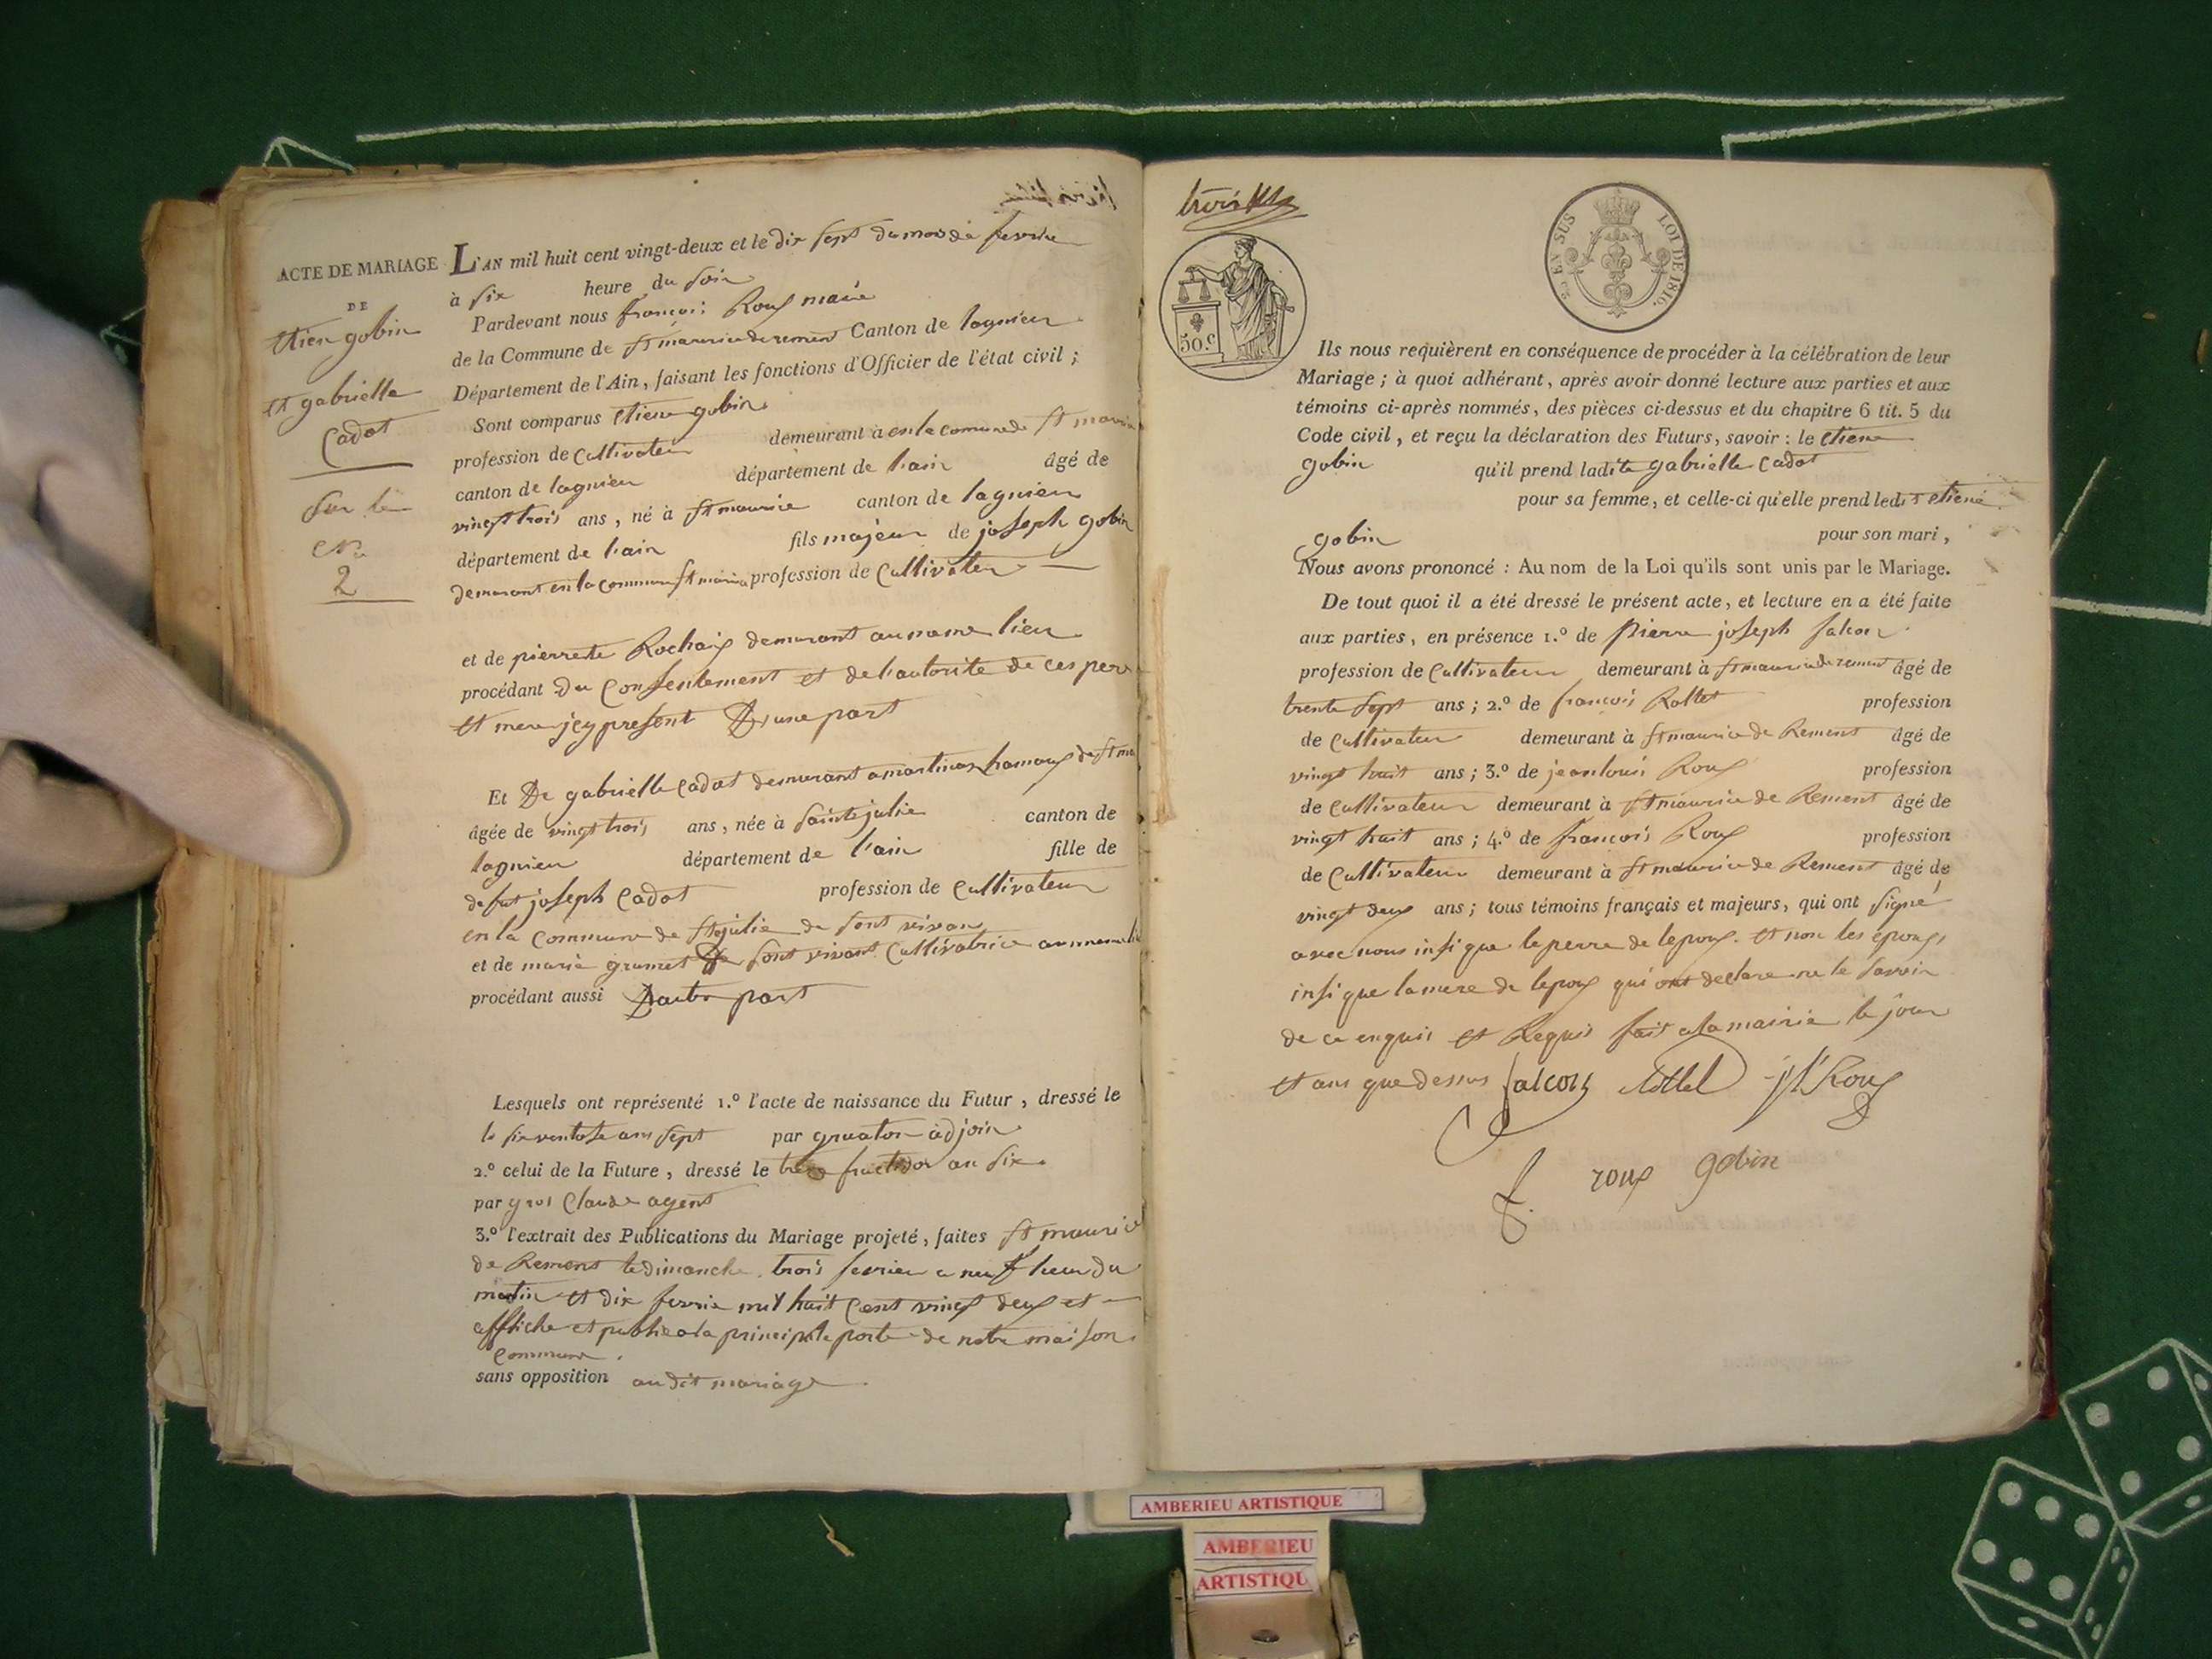 ACTE DE MARIAGE
DE
Etien gobin
et gabrielle
Cadot
Sur le
No
2
L'AN mil huit cent vingt-deux et le dix sept du mois de fevrier
à six heure du soir
Pardevant nous françois Roux maire
de la Commune de st maurice de remens Canton de lagnieu
Département de l'Ain, faisant les fonctions d'Officier de l'état civil ;
Sont comparus etiene gobin
profession de Cultivateur demeurant à en la comune de st mauri
canton de lagnieu département de lain âgé de
vingt trois ans, né à st maurice canton de lagnieu
département de lain fils majeur de joseph gobin
demeurant en la commune st mauri profession de Cultivateur
et de pierrette Rochaix demurant au meme lieu
procédant du Consentement et de lautorite de ces pere
et mere jcy present D'une part
Et De gabrielle Cadot demurant a martinas hamaux de st ma
âgée de vingt trois ans, née à sainte julie canton de
lagnieu département de l'ain fille de
defut joseph Cadot profession de Cultivateur
en la Commune de ste julie de sont vivan
et de marie grumet de sont vivant Cultivatrice au meme li
procédant aussi Dautre part
Lesquels ont représenté 1.º l'acte de naissance du Futur, dressé le
le six ventose ans sept par gruaton adjoin
2.º celui de la Future, dressé le fructidor an six
par gros Claude agent
3.º l'extrait des Publications du Mariage projeté, faites st mauric
de Remens le dimanche trois fevrier a neuf heur du
matin et dix fevrie mil huit Cent vingt deux et
affiche et publie a la principale porte de notre maison
Commune
sans opposition au dit mariage
trois
50.C
EN SUS
LOI DE 1816.
Ils nous requièrent en conséquence de procéder à la célébration de leur
Mariage ; à quoi adhérant, après avoir donné lecture aux parties et aux
témoins ci-après nommés, des pièces ci-dessus et du chapitre 6 tit. 5 du
Code civil, et reçu la déclaration des Futurs, savoir : le etiene
gobin qu'il prend ladite gabrielle Cadot
pour sa femme, et celle-ci qu'elle prend ledit etiene
gobin pour son mari,
Nous avons prononcé : Au nom de la Loi qu'ils sont unis par le Mariage.
De tout quoi il a été dressé le présent acte, et lecture en a été faite
aux parties, en présence 1.º de Pierre joseph falcon
profession de Cultivateur demeurant à st maurice de remens âgé de
trente sept ans ; 2.º de françois Rollet profession
de Cultivateur demeurant à st maurice de Remens âgé de
vingt huit ans ; 3.º de jean louis Roux profession
de Cultivateur demeurant à st maurice de Remens âgé de
vingt huit ans ; 4.º de françois Roux profession
de Cultivateur demeurant à st maurice de Remens âgé de
vingt deux ans ; tous témoins français et majeurs, qui ont signé
avec nous insi que le perre de lepoux et non les epoux
insi que la mere de lepoux qui ont declare ne le savoir
de ce enquis et Requis fait a la mairie le jour
et ans que dessus falcon Rollet j l Roux
f. roux gobin
AMBERIEU ARTISTIQUE
AMBERIEU
ARTISTIQU